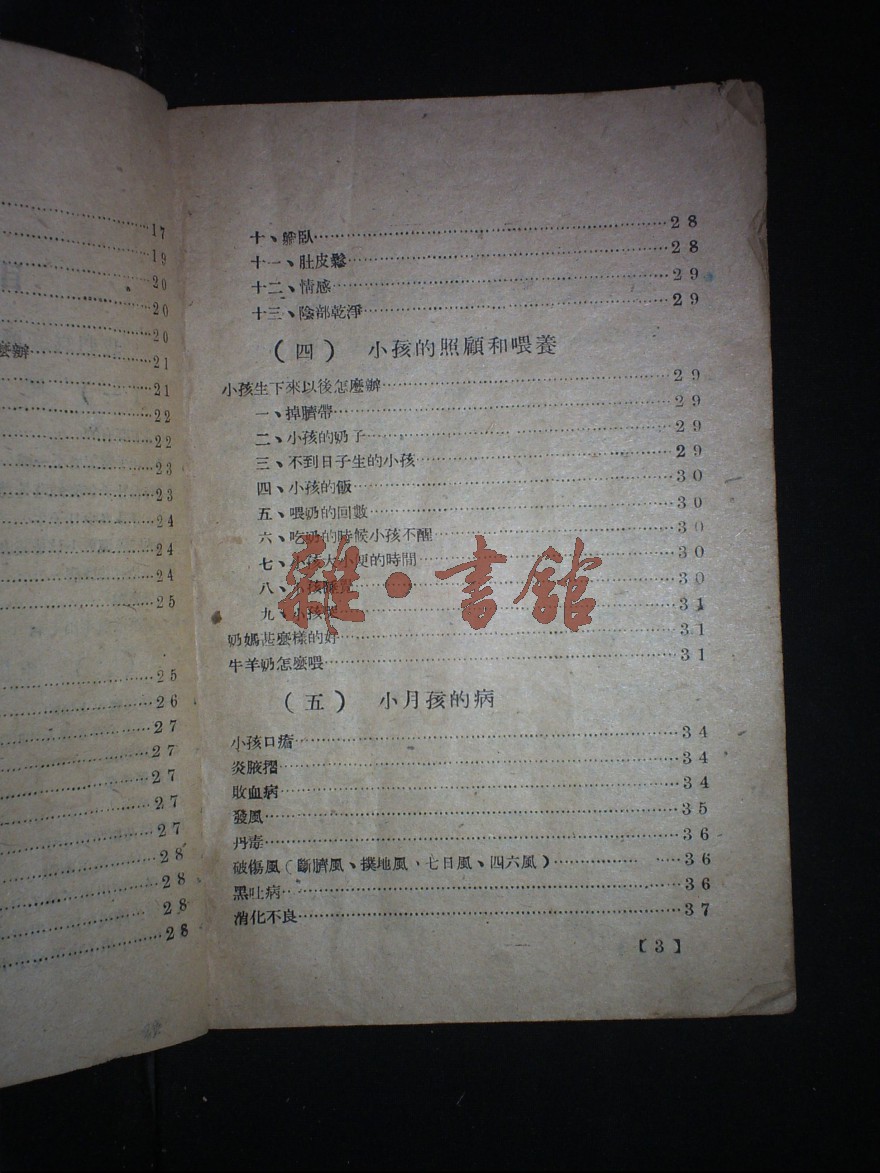 17
19
20
20
20
麼辦 21
21
22
22
23
23
24
24
24
25
25
26
27
27
27
27
27
28
28
28
28
十、躺臥 28
十一、肚皮鬆 28
十二、情感 29
十三、陰部乾淨 29
(四) 小孩的照顧和喂養
小孩生下來以後怎麼辦 29
一、掉臍帶 29
二、小孩的奶子 29
三、不到日子生的小孩 29
四、小孩的飯 30
五、喂奶的回數 30
六、吃奶的時候小孩不醒 30
七、小孩大小便的時間 30
八、小孩睡覺 30
九、小孩哭 31
奶媽甚麼樣的好 31
牛羊奶怎麼喂 31
(五) 小月孩的病
小孩口瘡 34
炎腋摺 34
敗血病 34
發風 35
丹毒 36
破傷風(斷臍風、撲地風、七日風、四六風) 36
黑吐病 36
消化不良 37
【3】
雜·書館